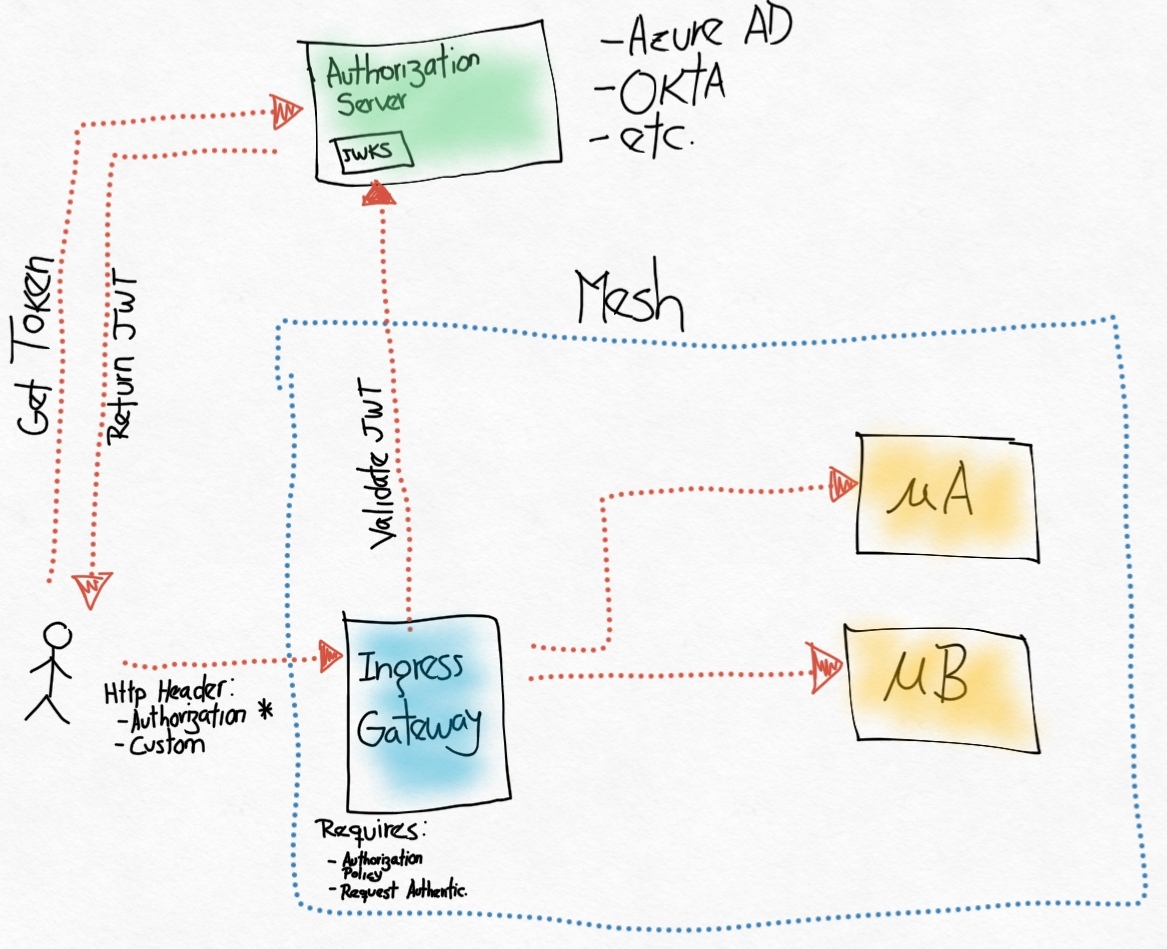 Authorization
Server
JWKS
-Azure AD
-OKTA
-etc.
Get Token
Return JWT
Mesh
Validate JWT
μA
μB
Ingress
Gateway
Http Header:
-Authorization *
-Custom
Requires:
- Authorization
Policy
- Request Authentic.